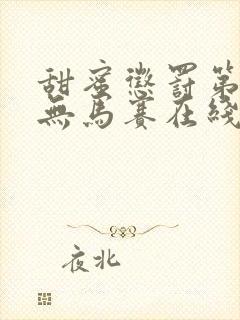 甜蜜懲罰第
無馬賽在綫
夜北